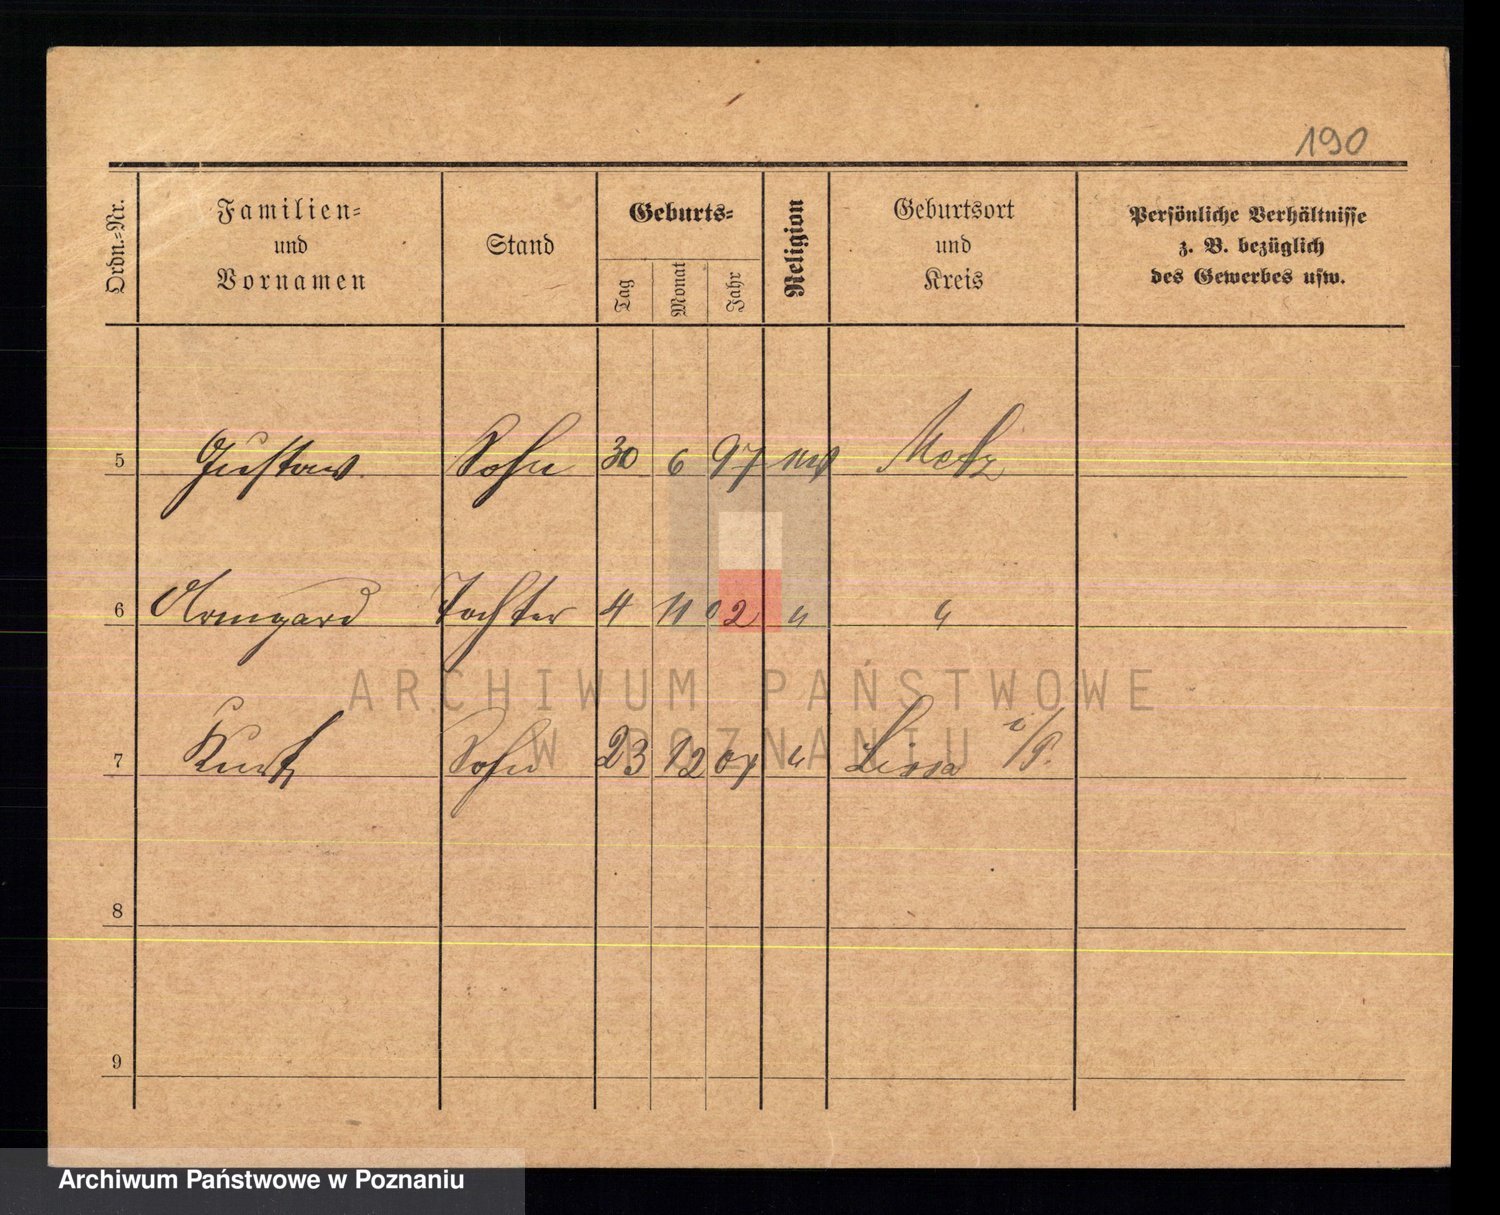 190
Ordn.-Nr. Familien- und Vornamen Stand Geburts- Tag Monat Jahr Religion Geburtsort und Kreis Persönliche Verhältnisse z. B. bezüglich des Gewerbes usw.
5 Gustav Sohn 30 6 97 Metz
6 Armgard Tochter 4 11 02 " "
7 Kurt Sohn 23 12 " Lissa i/P.
8
9
ARCHIWUM PAŃSTWOWE
W POZNANIU
Archiwum Państwowe w Poznaniu